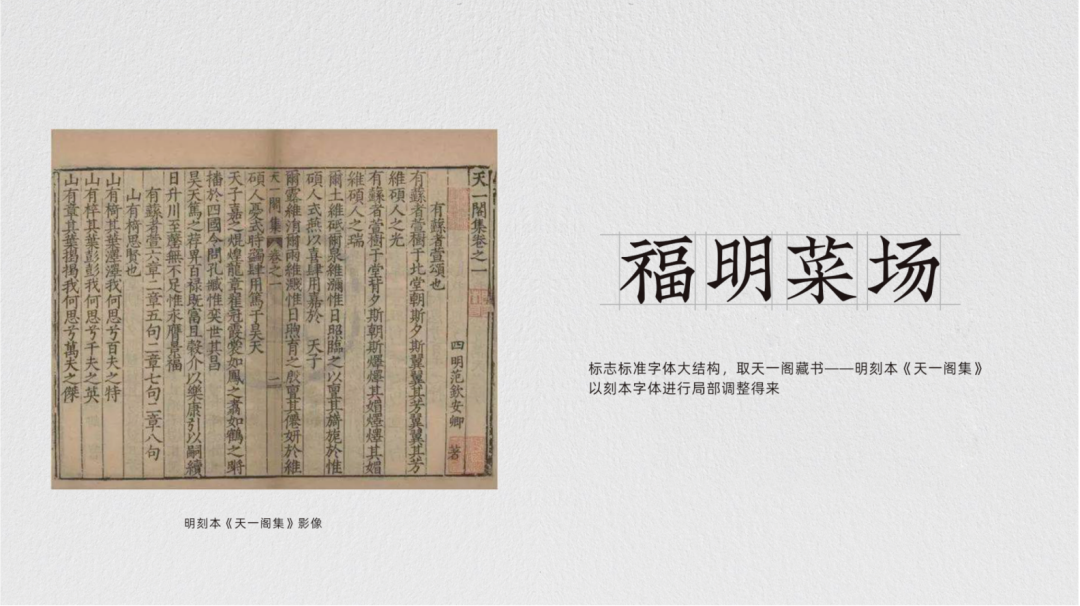 天一閣集卷之一
四明范欽安卿 著
有蘇者萱頌也
有蘇者萱樹于北堂朝斯夕斯翼翼其芳翼翼其芳
維碩人之光
有蘇者萱樹于堂背夕斯朝斯爗爗其媚爗爗其媚
維碩人之瑞
爾土維砥爾泉維瀰惟日照臨之以亶其旖旎於惟
碩人式燕以喜肆用嘉於 天子
爾露維湑爾雨維溉惟日煦育之亶其僊妍於維
天一閣集 卷之一 二
碩人式時肆用篤于昊天
天子嘉之焜煌龍章翟冠霞帔如鳳之翥如鶴之蹡
播於四國令聞孔臧惟奕世其昌
昊天篤之荐畀百祿既富且穀介以樂康引以嗣續
日升川至罄無不足惟永膺景福
有蘇者萱六章二章五句二章七句二章八句
山有椅思賢也
山有椅其葉我何思兮百夫之特
山有梓其葉彭彭我何思兮千夫之英
山有其葉揭揭我何思兮萬夫之傑
明刻本《天一阁集》影像
福明菜场
标志标准字体大结构，取天一阁藏书——明刻本《天一阁集》
以刻本字体进行局部调整得来